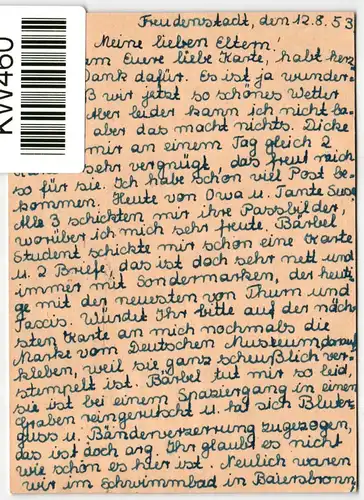 KW460
Freudenstadt, den 12.8.53
Meine lieben Eltern!
Euere liebe Karte, habt herz
Dank dafür. Es ist ja wunder
ß wir jetzt so schönes Wetter
Aber leider kann ich nicht ba-
aber das macht nichts. Dicke
mir an einem Tag gleich 2
sehr vergnügt, das freut mich
so für sie. Ich habe schon viel Post be-
kommen. Heute von Owa u. Tante Suse
Alle 3 schickten mir ihre Passbilder,
worüber ich mich sehr freute. Bärbel
Student schickte mir schon eine Karte
u. 2 Briefe, das ist doch sehr nett und
immer mit Sondermarken, der heuti
ge mit der neuesten von Thurn und
Tascis. Würdet Ihr bitte auf der näch
sten Karte an mich nochmals die
Marke vom Deutschen Museum darauf
kleben, weil sie ganz scheußlich ver-
stempelt ist. Bärbel tut mir so leid,
sie ist bei einem Spaziergang in einen
Graben reingerutscht u. hat sich Bluter-
guss u. Bänderverzerrung zugezogen,
das ist doch arg. Ihr glaubt es nicht
wie schön es hier ist. Neulich waren
wir im Schwimmbad in Baiersbronn,